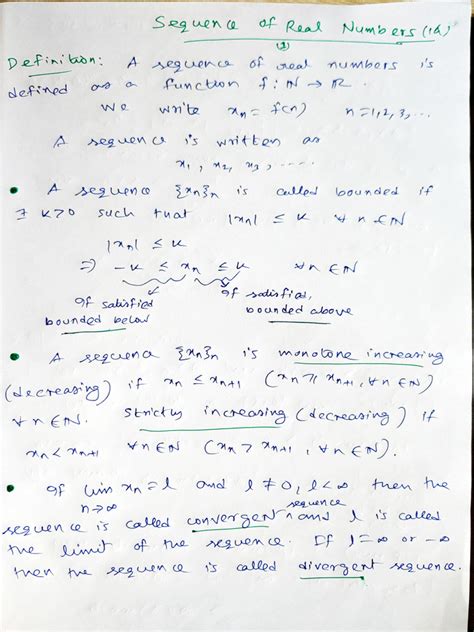 Sequence of Real Numbers (1a)
(1)
Definition: A sequence of real numbers is
defined as a function f: ℕ → ℝ.
We write xₙ = f(n) n = 1, 2, 3, ...
A sequence is written as
x₁, x₂, x₃, .....
• A sequence {xₙ}ₙ is called bounded if
∃ K>0 such that |xₙ| ≤ K ∀ n ∈ ℕ
|xₙ| ≤ K
⇒ -K ≤ xₙ ≤ K ∀ n ∈ ℕ
If satisfied If satisfied,
bounded below bounded above
• A sequence {xₙ}ₙ is monotone increasing
(decreasing) if xₙ ≤ xₙ₊₁ (xₙ ≥ xₙ₊₁, ∀ n ∈ ℕ)
∀ n ∈ ℕ. Strictly increasing (decreasing) if
xₙ < xₙ₊₁ ∀ n ∈ ℕ (xₙ > xₙ₊₁, ∀ n ∈ ℕ).
• If lim xₙ = l and l ≠ 0, l < ∞ then the
n→∞ sequence
sequence is called convergent ^ and l is called
the limit of the sequence. If l = ∞ or -∞
then the sequence is called divergent sequence.